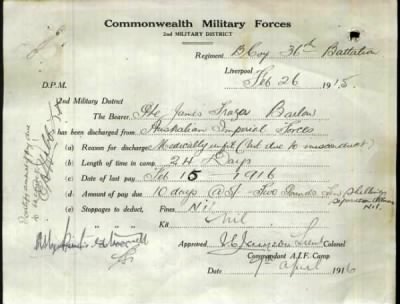 Commonwealth Military Forces
2ND MILITARY DISTRICT
Regiment B Coy 36th Battalion
Liverpool
Feb 26 1915.
D.P.M.
2nd Military District
The Bearer, Pte James Frazer Barlow
has been discharged from Australian Imperial Forces
(a) Reason for discharge Medically unfit (not due to misconduct)
(b) Length of time in camp 24 Days
(c) Date of last pay Feb 15 - 1916
(d) Amount of pay due 10 days @ 5/- Two Pounds Ten Shillings
Separation Allowance Nil.
Stoppages to deduct, Fines Nil
" " " Nil.
Approved Lieut Colonel
Commandant A.I.F. Camp
Date 7th April 1916